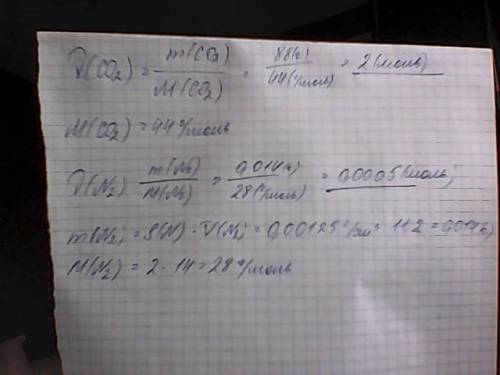 ν(CO₂) = m(CO₂) / M(CO₂) = 88(г) / 44(г/моль) = 2(моль)
M(CO₂) = 44 г/моль
ν(N₂) m(N₂) / M(N₂) = 0,014(г) / 28(г/моль) = 0,0005(моль)
m(N₂) = ρ(N) · V(N₂) = 0,00125 г/ · 11,2 = 0,014(г)
M(N₂) = 2 · 14 = 28 г/моль